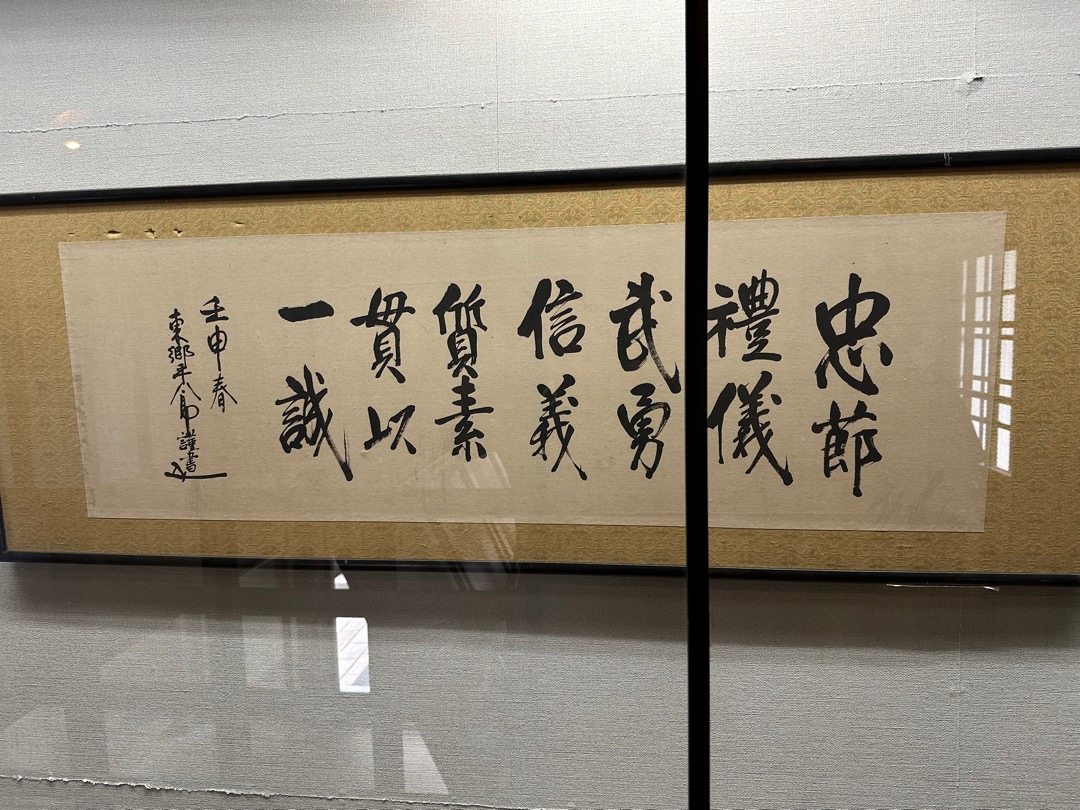 忠節
禮儀
武勇
信義
質素
貫以
一誠
壬申春
東郷平八郎謹書